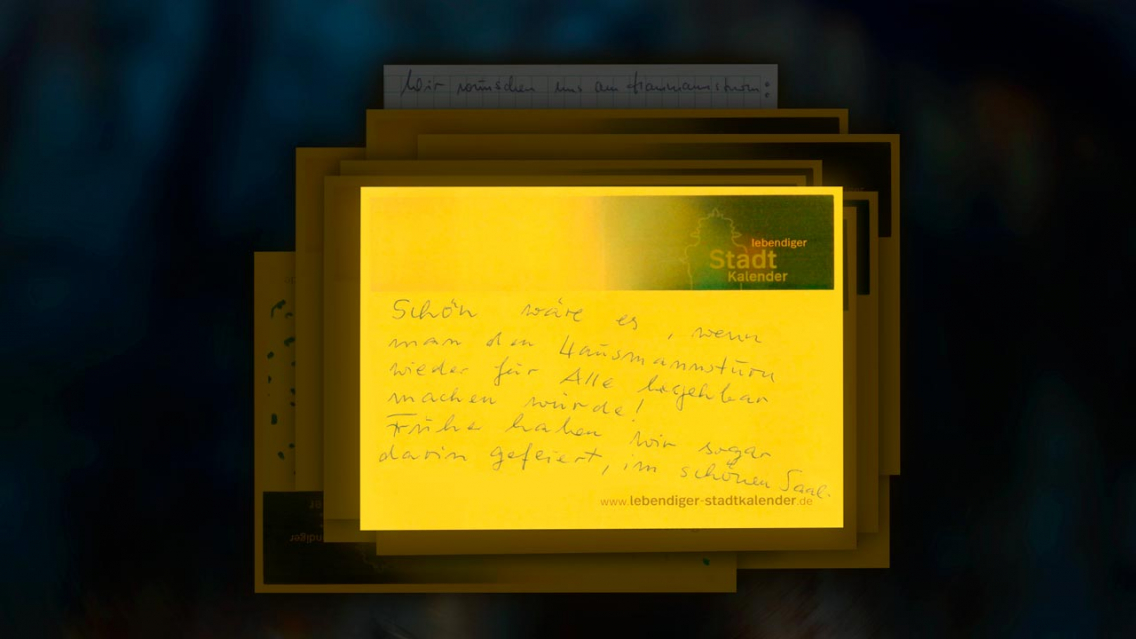 Wir wünschen uns am Hausmannsturm:
lebendiger
Stadt
Kalender
Schön wäre es, wenn
man den Hausmannsturm
wieder für Alle begehbar
machen würde!
Früher haben wir sogar
darin gefeiert, im schönen Saal.
www.lebendiger-stadtkalender.de